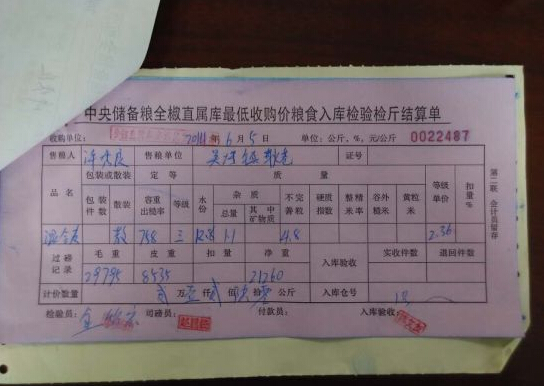 中央储备粮全椒直属库最低收购价粮食入库检验检斤结算单
收购单位: 2014年6月5日 单位:公斤、%、元/公斤 0022487
售粮人 售粮单位 证号
包装或散装 定等 质量
品名 包装件数 散装 容重出糙率 等级 水份 杂质 不完善粒 硬质指数 整精米率 谷外糙米 黄粒米 等级单价 扣量%
总量 其中矿物质
混合麦 散 788 三 12.8 1.1 4.8 2.36
过磅记录 毛重 皮重 扣量 净重 入库验收 实收件数 退回件数
29795 8535 21260
计价数量 贰万壹仟贰佰陆拾零公斤 入库仓号
检验员: 司磅员: 付款员: 入库验收:
第二联 会计员留存